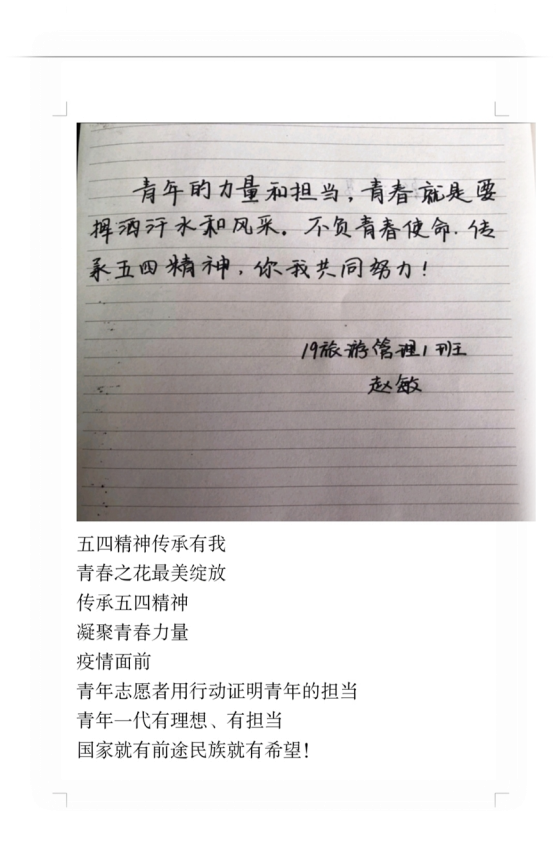 青年的力量和担当，青春就是要
挥洒汗水和风采。不负青春使命.传
承五四精神，你我共同努力！
19旅游管理1班
赵敏
五四精神传承有我
青春之花最美绽放
传承五四精神
凝聚青春力量
疫情面前
青年志愿者用行动证明青年的担当
青年一代有理想、有担当
国家就有前途民族就有希望！